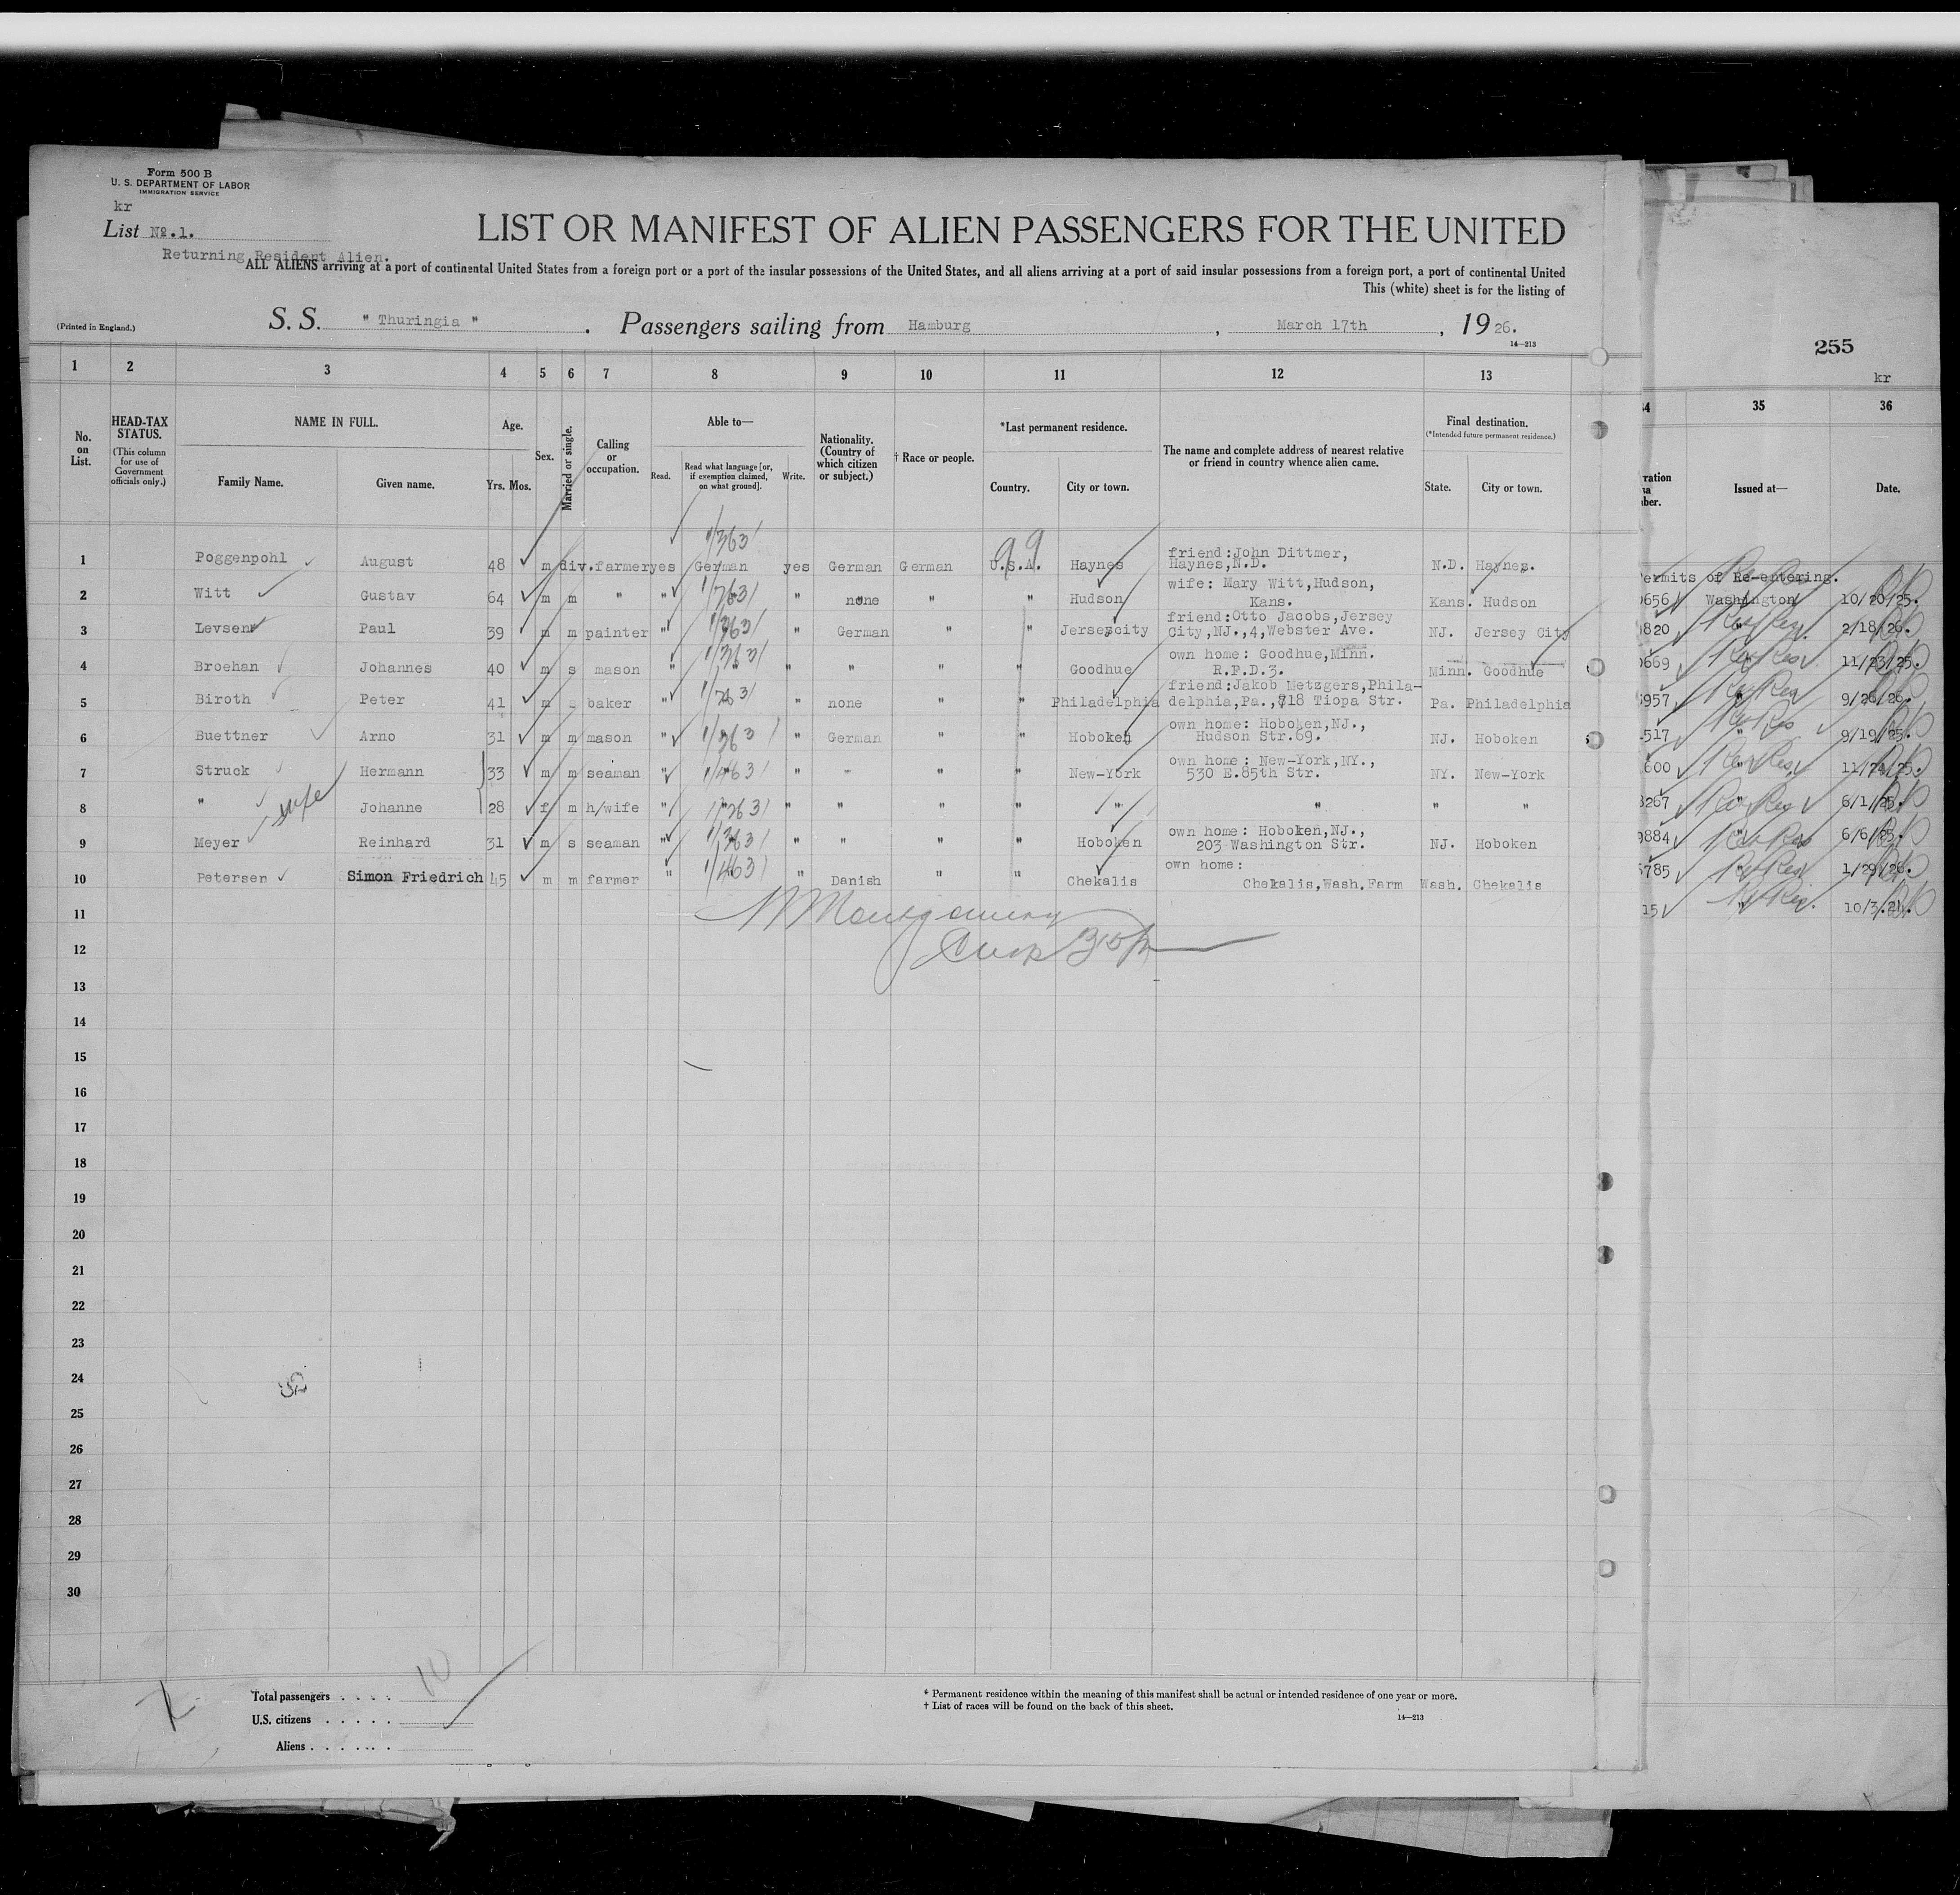 Form 500 B
U. S. DEPARTMENT OF LABOR
IMMIGRATION SERVICE
kr
List No.1.
LIST OR MANIFEST OF ALIEN PASSENGERS FOR THE UNITED
Returning Resident Alien.
ALL ALIENS arriving at a port of continental United States from a foreign port or a port of the insular possessions of the United States, and all aliens arriving at a port of said insular possessions from a foreign port, a port of continental United
This (white) sheet is for the listing of
(Printed in England.)
S. S. " Thuringia " . Passengers sailing from Hamburg , March 17th , 1926.
14—213
255
kr
1 2 3 4 5 6 7 8 9 10 11 12 13
4 35 36
No. on List.
HEAD-TAX STATUS.
(This column for use of Government officials only.)
NAME IN FULL.
Family Name. Given name.
Age.
Yrs. Mos.
Sex.
Married or single.
Calling or occupation.
Able to—
Read. Read what language [or, if exemption claimed, on what ground]. Write.
Nationality. (Country of which citizen or subject.)
† Race or people.
*Last permanent residence.
Country. City or town.
The name and complete address of nearest relative or friend in country whence alien came.
Final destination.
(*Intended future permanent residence.)
State. City or town.
Issued at— Date.
1 Poggenpohl August 48 m div. farmer yes German yes German German U.S.A. Haynes friend:John Dittmer, Haynes,N.D. N.D. Haynes.
2 Witt Gustav 64 m m " " " none " " Hudson wife: Mary Witt,Hudson, Kans. Kans. Hudson
3 Levsen Paul 39 m m painter " " " German " " Jerseycity friend:Otto Jacobs,Jersey City,NJ.,4,Webster Ave. NJ. Jersey City
4 Broehan Johannes 40 m s mason " " " " " " Goodhue own home: Goodhue,Minn. R.F.D.3. Minn. Goodhue
5 Biroth Peter 41 m s baker " " " none " " Philadelphia friend:Jakob Metzgers,Phila- delphia,Pa.,718 Tiopa Str. Pa. Philadelphia
6 Buettner Arno 31 m m mason " " " German " " Hoboken own home: Hoboken,NJ., Hudson Str.69. NJ. Hoboken
7 Struck Hermann 33 m m seaman " " " " " " New-York own home: New-York,NY., 530 E.85th Str. NY. New-York
8 " wife Johanne 28 f m h/wife " " " " " " " " " "
9 Meyer Reinhard 31 m s seaman " " " " " " Hoboken own home: Hoboken,NJ., 203 Washington Str. NJ. Hoboken
10 Petersen Simon Friedrich 45 m m farmer " " " Danish " " Chekalis own home: Chekalis,Wash.Farm Wash. Chekalis
Permits of Re-entering.
0656 Washington 10/20/25.
820 " 2/18/26.
0669 " 11/23/25.
957 " 9/26/26.
517 " 9/19/25.
600 " 11/24/25.
267 " 6/1/25.
9884 " 6/6/25.
785 " 1/29/26.
15 " 10/3.24.
11
12
13
14
15
16
17
18
19
20
21
22
23
24
25
26
27
28
29
30
Total passengers 10
U.S. citizens
Aliens
* Permanent residence within the meaning of this manifest shall be actual or intended residence of one year or more.
† List of races will be found on the back of this sheet.
14—213